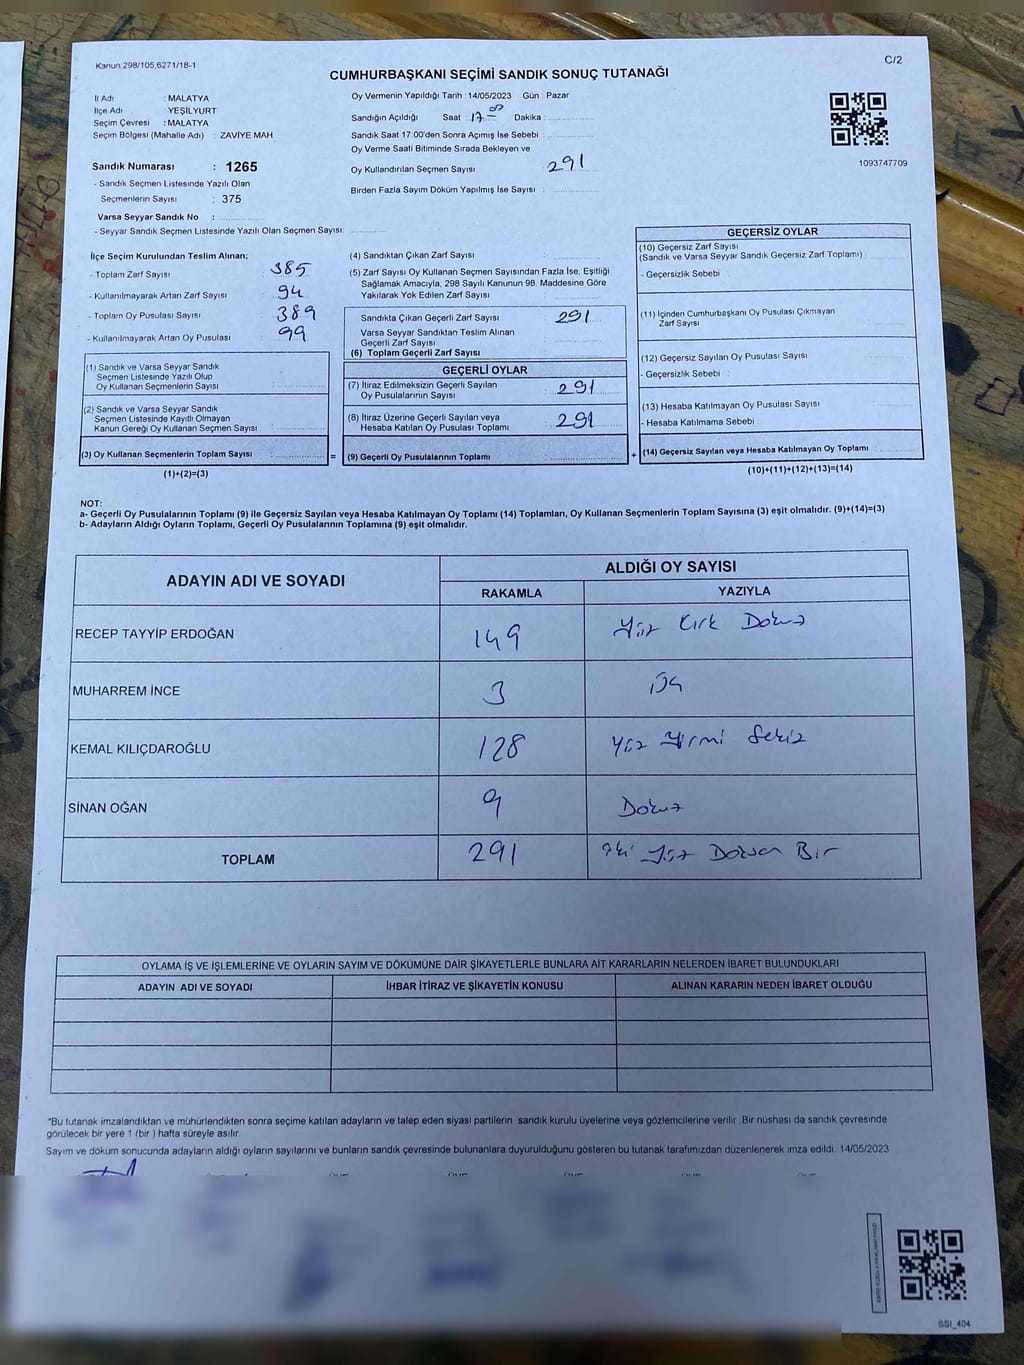 Kanun:298/105,6271/18-1
C/2
CUMHURBAŞKANI SEÇİMİ SANDIK SONUÇ TUTANAĞI
İl Adı : MALATYA
İlçe Adı : YEŞİLYURT
Seçim Çevresi : MALATYA
Seçim Bölgesi (Mahalle Adı) : ZAVİYE MAH
Sandık Numarası : 1265
- Sandık Seçmen Listesinde Yazılı Olan
Seçmenlerin Sayısı : 375
Varsa Seyyar Sandık No :
- Seyyar Sandık Seçmen Listesinde Yazılı Olan Seçmen Sayısı:
Oy Vermenin Yapıldığı Tarih : 14/05/2023 Gün : Pazar
Sandığın Açıldığı Saat : 17 00 Dakika :
Sandık Saat 17:00'den Sonra Açımış İse Sebebi :
Oy Verme Saati Bitiminde Sırada Bekleyen ve
Oy Kullandırılan Seçmen Sayısı : 291
Birden Fazla Sayım Döküm Yapılmış İse Sayısı :
1093747709
İlçe Seçim Kurulundan Teslim Alınan;
- Toplam Zarf Sayısı : 385
- Kullanılmayarak Artan Zarf Sayısı : 94
- Toplam Oy Pusulası Sayısı : 389
- Kullanılmayarak Artan Oy Pusulası : 99
(1) Sandık ve Varsa Seyyar Sandık
Seçmen Listesinde Yazılı Olup
Oy Kullanan Seçmenlerin Sayısı :
(2) Sandık ve Varsa Seyyar Sandık
Seçmen Listesinde Kayıtlı Olmayan
Kanun Gereği Oy Kullanan Seçmen Sayısı :
(3) Oy Kullanan Seçmenlerin Toplam Sayısı : =
(1)+(2)=(3)
(4) Sandıktan Çıkan Zarf Sayısı :
(5) Zarf Sayısı Oy Kullanan Seçmen Sayısından Fazla İse, Eşitliği
Sağlamak Amacıyla, 298 Sayılı Kanunun 98. Maddesine Göre
Yakılarak Yok Edilen Zarf Sayısı :
Sandıkta Çıkan Geçerli Zarf Sayısı : 291
Varsa Seyyar Sandıktan Teslim Alınan
Geçerli Zarf Sayısı :
(6) Toplam Geçerli Zarf Sayısı :
GEÇERLİ OYLAR
(7) İtiraz Edilmeksizin Geçerli Sayılan
Oy Pusulalarının Sayısı : 291
(8) İtiraz Üzerine Geçerli Sayılan veya
Hesaba Katılan Oy Pusulası Toplamı : 291
(9) Geçerli Oy Pusulalarının Toplamı : +
GEÇERSİZ OYLAR
(10) Geçersiz Zarf Sayısı
(Sandık ve Varsa Seyyar Sandık Geçersiz Zarf Toplamı) :
- Geçersizlik Sebebi :
(11) İçinden Cumhurbaşkanı Oy Pusulası Çıkmayan
Zarf Sayısı :
(12) Geçersiz Sayılan Oy Pusulası Sayısı :
- Geçersizlik Sebebi :
(13) Hesaba Katılmayan Oy Pusulası Sayısı :
- Hesaba Katılmama Sebebi :
(14) Geçersiz Sayılan veya Hesaba Katılmayan Oy Toplamı :
(10)+(11)+(12)+(13)=(14)
NOT:
a- Geçerli Oy Pusulalarının Toplamı (9) ile Geçersiz Sayılan veya Hesaba Katılmayan Oy Toplamı (14) Toplamları, Oy Kullanan Seçmenlerin Toplam Sayısına (3) eşit olmalıdır. (9)+(14)=(3)
b- Adayların Aldığı Oyların Toplamı, Geçerli Oy Pusulalarının Toplamına (9) eşit olmalıdır.
ADAYIN ADI VE SOYADI
ALDIĞI OY SAYISI
RAKAMLA YAZIYLA
RECEP TAYYİP ERDOĞAN 149 Yüz Kırk Dokuz
MUHARREM İNCE 3 Üç
KEMAL KILIÇDAROĞLU 128 Yüz Yirmi Sekiz
SİNAN OĞAN 9 Dokuz
TOPLAM 291 İki Yüz Doksan Bir
OYLAMA İŞ VE İŞLEMLERİNE VE OYLARIN SAYIM VE DÖKÜMÜNE DAİR ŞİKAYETLERLE BUNLARA AİT KARARLARIN NELERDEN İBARET BULUNDUKLARI
ADAYIN ADI VE SOYADI İHBAR İTİRAZ VE ŞİKAYETİN KONUSU ALINAN KARARIN NEDEN İBARET OLDUĞU
*Bu tutanak imzalandıktan ve mühürlendikten sonra seçime katılan adayların ve talep eden siyasi partilerin sandık kurulu üyelerine veya gözlemcilerine verilir. Bir nüshası da sandık çevresinde
görülecek bir yere 1 (bir) hafta süreyle asılır.
Sayım ve döküm sonucunda adayların aldığı oyların sayılarını ve bunların sandık çevresinde bulunanlara duyurulduğunu gösteren bu tutanak tarafımızdan düzenlenerek imza edildi. 14/05/2023
SSI_404